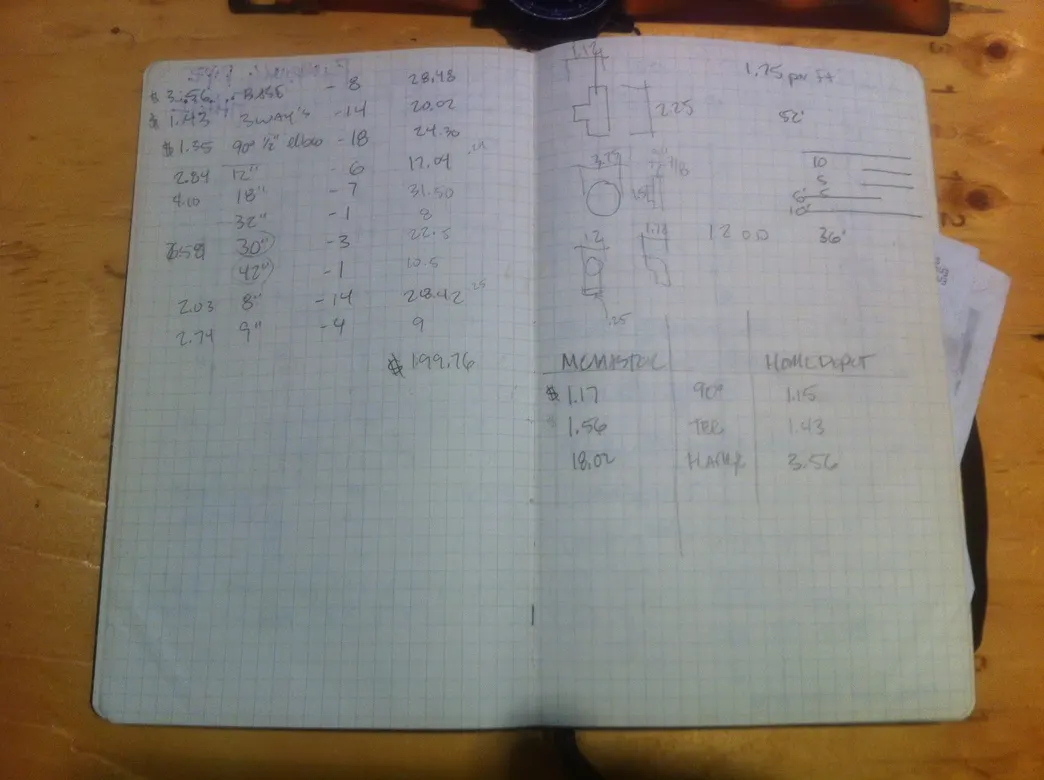 $ 3.56 BASE - 8 28.48
$ 1.43 3 WAY'S - 14 20.02
$ 1.35 90° ½" elbow - 18 24.30
2.84 12" - 6 17.04
4.10 18" - 7 31.50
32" - 1 8
7.58 30" - 3 22.5
42" - 1 10.5
2.03 8" - 14 28.42 .25
2.74 9" - 4 9
$ 199.76
1.12
2.25
3.75
1.2
1.12
.25
1.25 per ft
52'
10
5
6'
10'
1.2 O.D
36'
MCMASTER HOME DEPOT
$ 1.17 90° 1.15
1.56 TEE 1.43
18.02 3.56